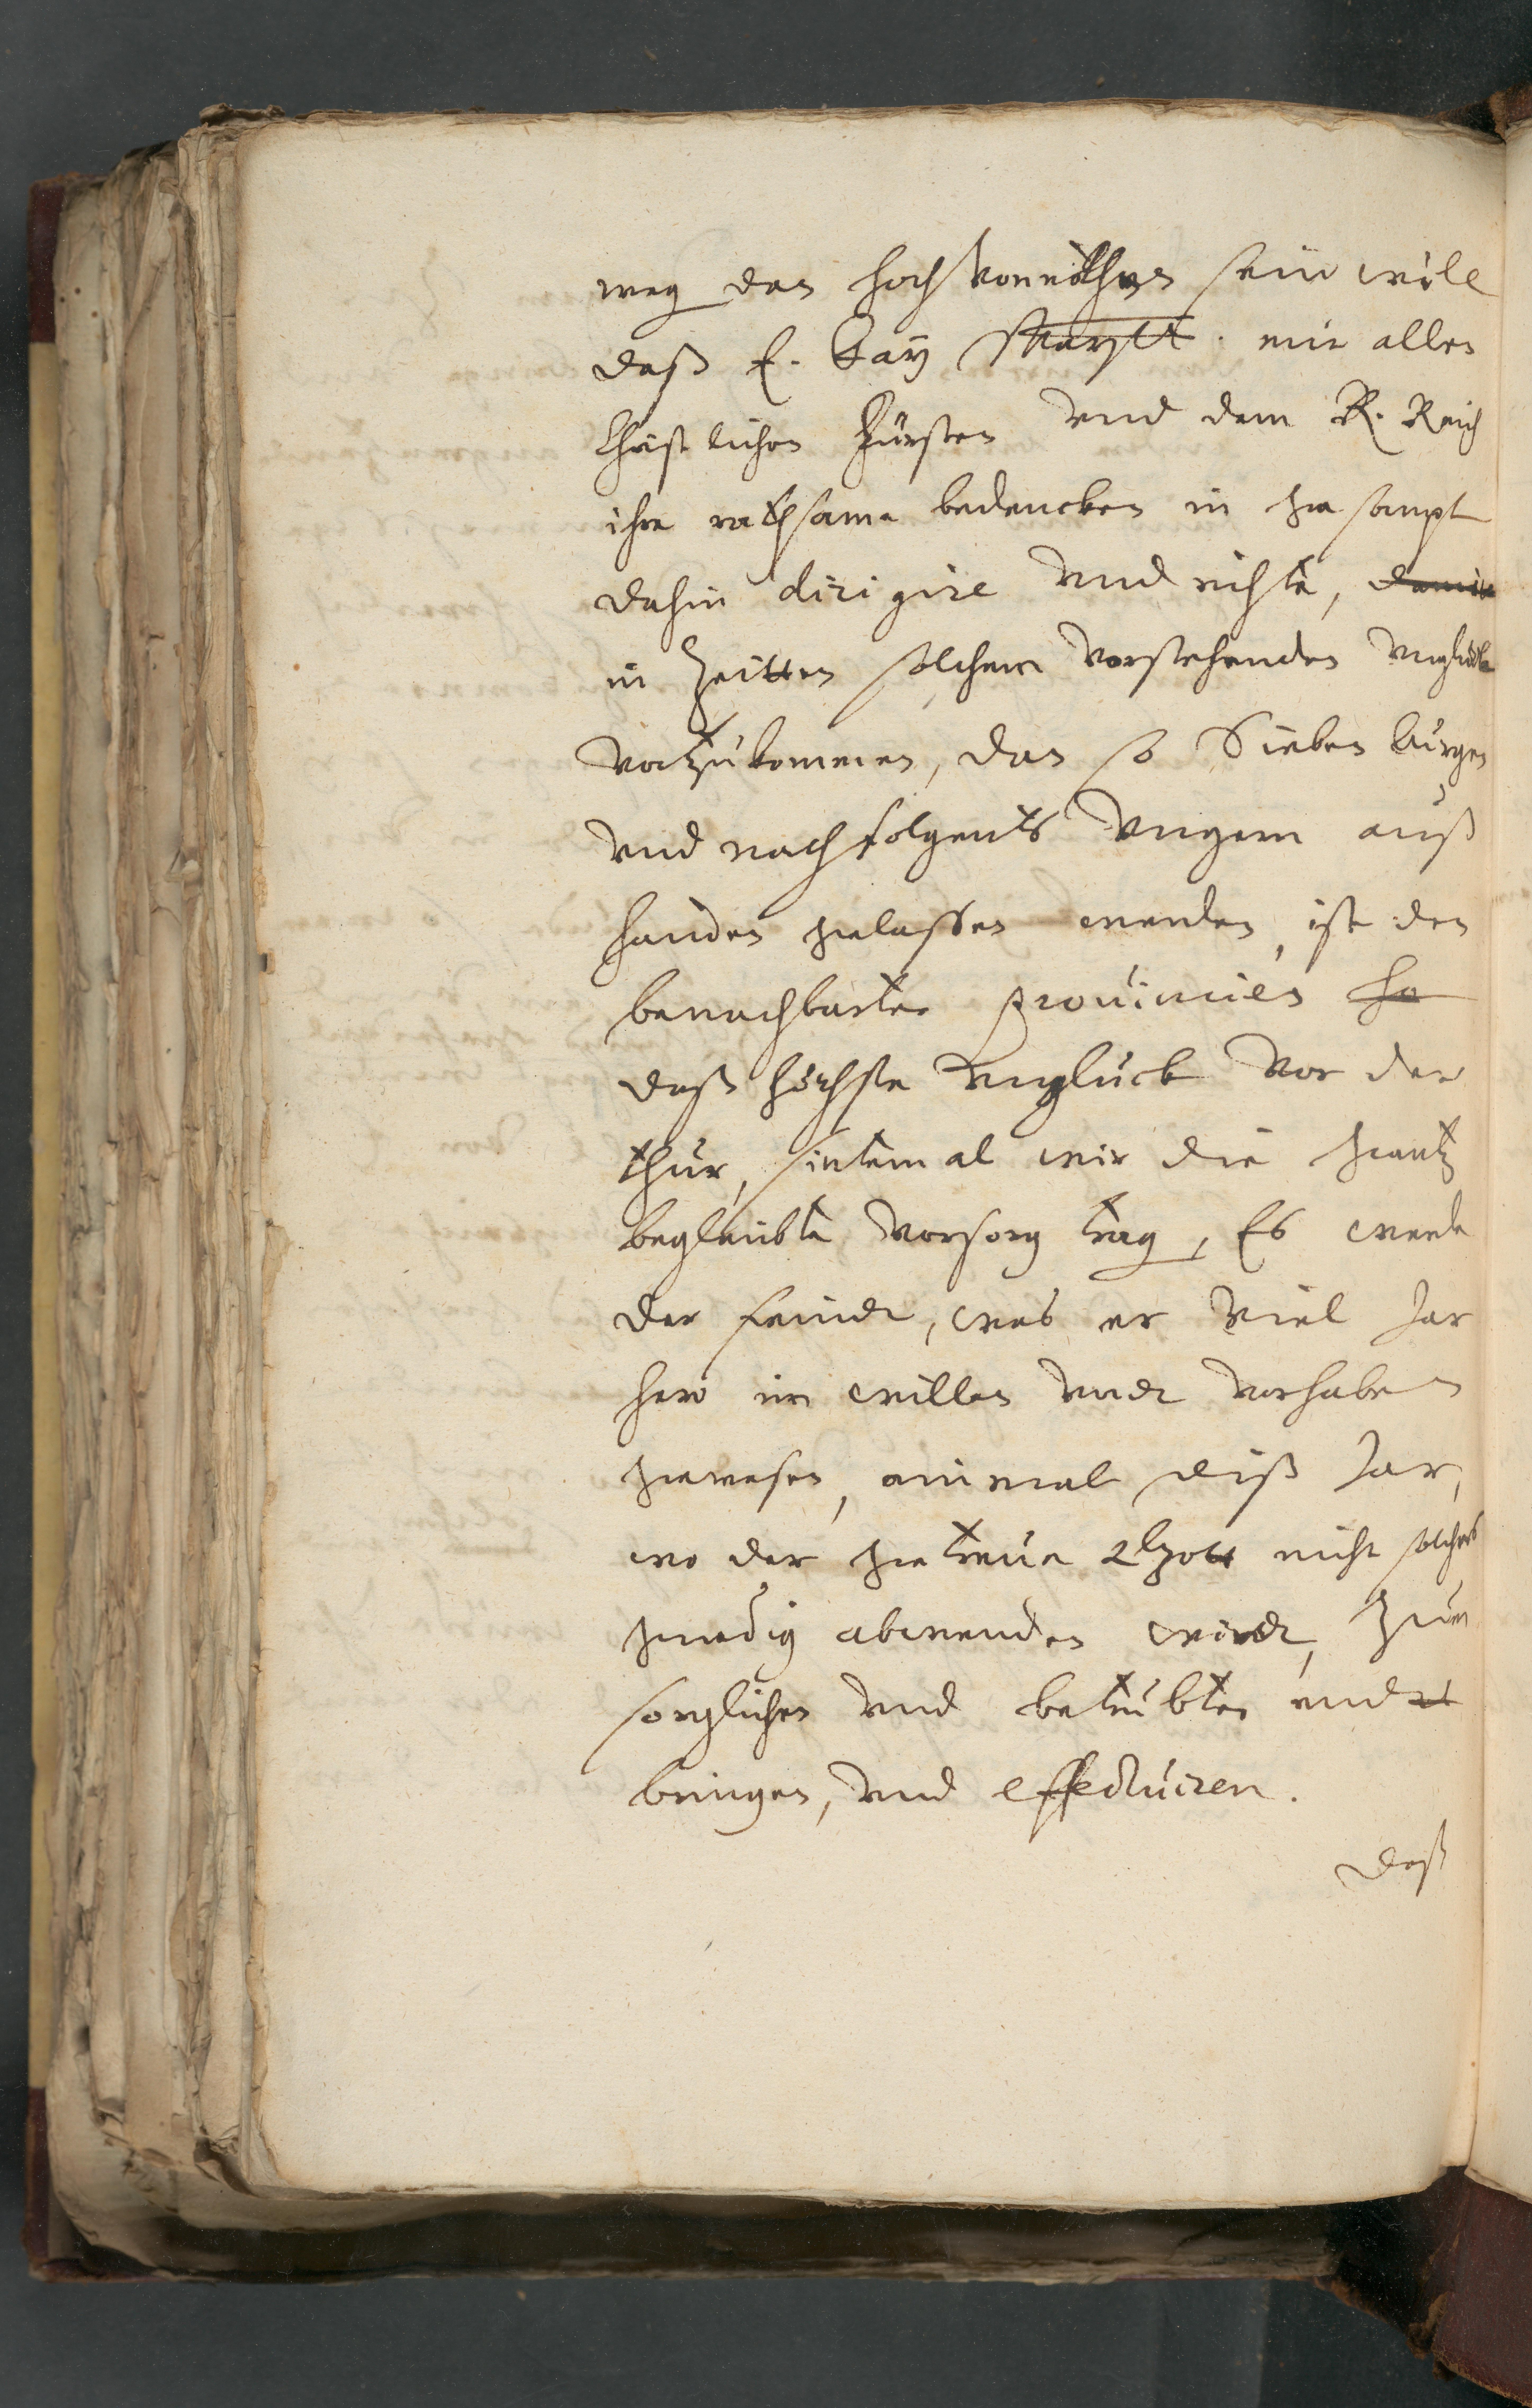 weg den hoch vonnöthen sein will
daß E. Kay Maystt. mit allen
Christlichen Fürsten vnd dem R. Reich
ihre rathsame bedencken in gesampt
dahin dirigire vnd richte, damit
in Zeitten solchem vorstehenden vnglück
vorzukommen, dan so Sieben bürgen
vnd nachfolgents Vngern auß
handen gelassen werden, ist den
benachbarten prouincien
daß höchste vnglück vor der
thür, sintemal wir die gantz
beglaubte vorsorg trag, Es werde
der feindt, was er viel Jar
hero im willen vndt vorhaben
gewesen, einmal diß Jar,
wo der getreue Gott nicht solches
gnedig abwenden wirdt, zum
sorglichen vnd betrübten endt
bringen, vnd effectuiren.
Daß